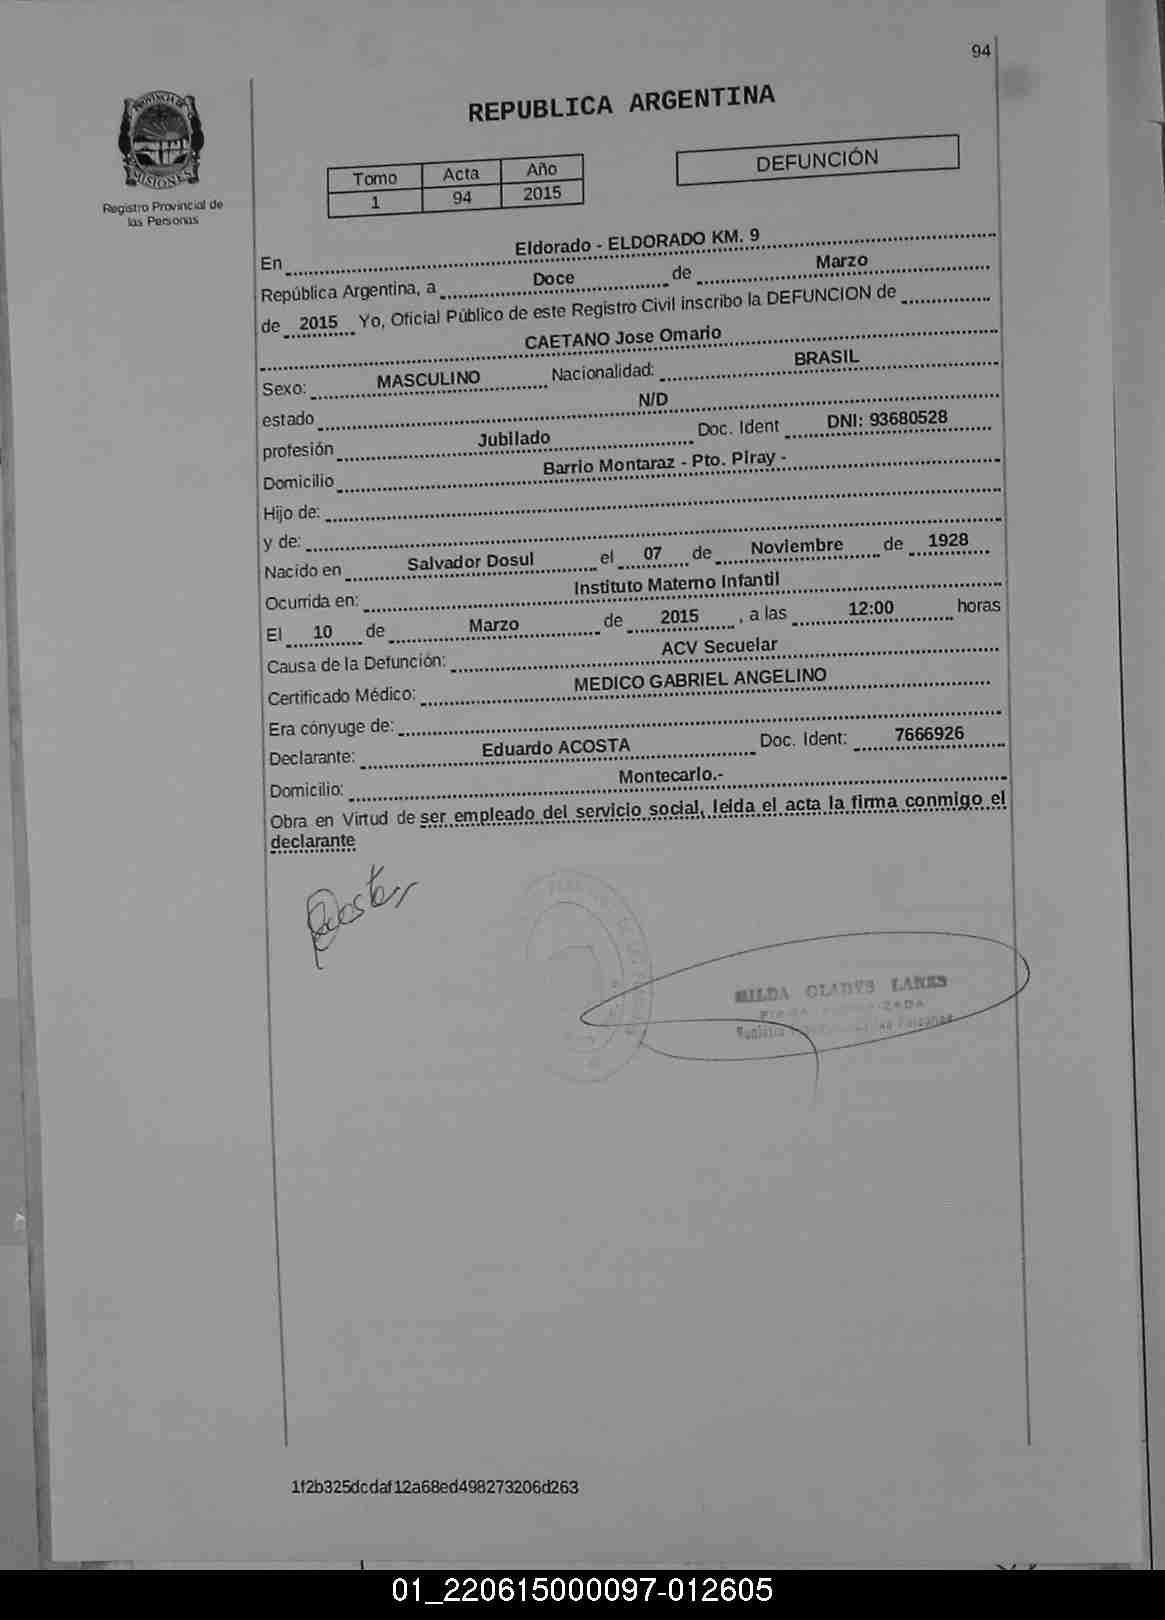 94
PROVINCIA DE
MISIONES
Registro Provincial de
las Personas
REPUBLICA ARGENTINA
Tomo Acta Año
1 94 2015
DEFUNCIÓN
En Eldorado - ELDORADO KM. 9
República Argentina, a Doce de Marzo
de 2015 Yo, Oficial Público de este Registro Civil inscribo la DEFUNCION de
CAETANO Jose Omario
Sexo: MASCULINO Nacionalidad: BRASIL
estado N/D
profesión Jubilado Doc. Ident DNI: 93680528
Domicilio Barrio Montaraz - Pto. Piray -
Hijo de:
y de:
Nacido en Salvador Dosul el 07 de Noviembre de 1928
Ocurrida en: Instituto Materno Infantil
El 10 de Marzo de 2015 , a las 12:00 horas
Causa de la Defunción: ACV Secuelar
Certificado Médico: MEDICO GABRIEL ANGELINO
Era cónyuge de:
Declarante: Eduardo ACOSTA Doc. Ident: 7666926
Domicilio: Montecarlo.-
Obra en Virtud de ser empleado del servicio social, leida el acta la firma conmigo el
declarante
Acosta
GLADYS LARES
Registro Personas
1f2b325dcdaf12a68ed498273206d263
01_220615000097-012605